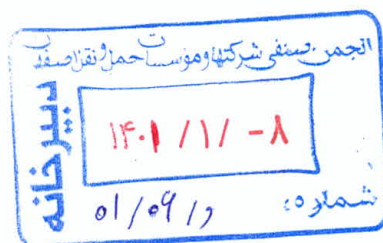 انجمن صنفی شرکتها و موسسات حمل و نقل اصفهان
دبیرخانه
۱۴۰۱ /۱ / -۸
شماره: 01/09/و